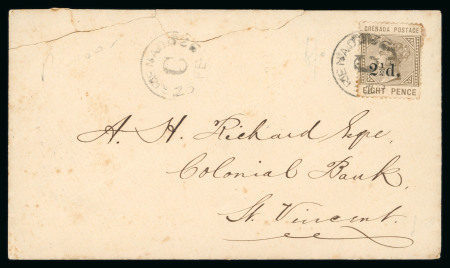 GRENADA POSTAGE
2½d.
EIGHT PENCE
C
A. H. Richard Esqe,
Colonial Bank,
St. Vincent.